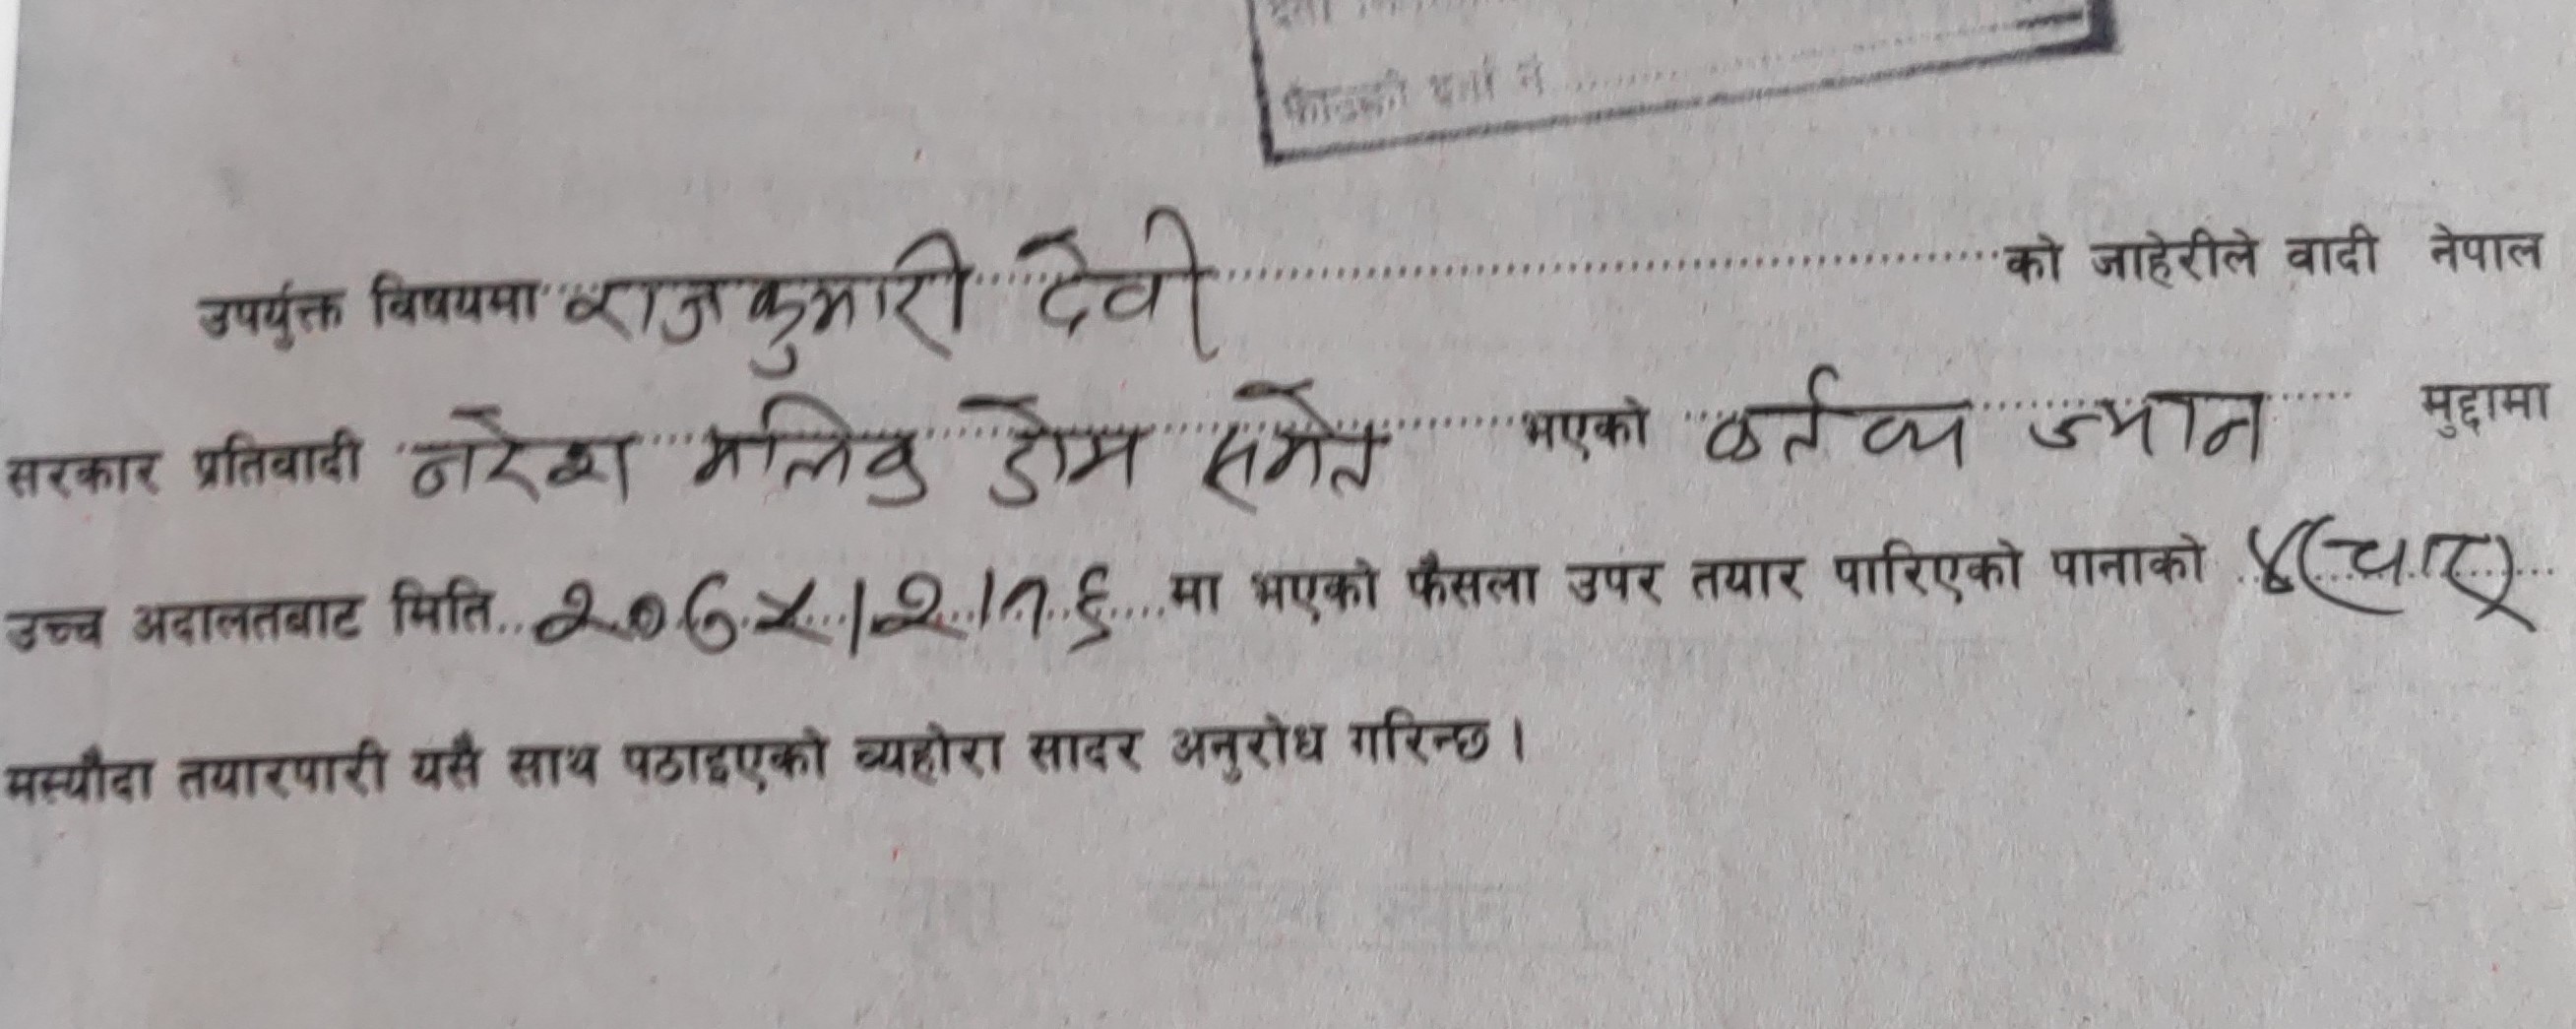 दर्ता
फाँटको दर्ता नं ..........
उपर्युक्त विषयमा राजकुमारी देवी ..........को जाहेरीले वादी नेपाल
सरकार प्रतिवादी नरेश मलिक डोम समेत भएको कर्तव्य ज्यान मुद्दामा
उच्च अदालतबाट मिति..२०७५।२।१६....मा भएको फैसला उपर तयार पारिएको पानाको ४(चार)
मस्यौदा तयारपारी यसै साथ पठाइएको व्यहोरा सादर अनुरोध गरिन्छ ।